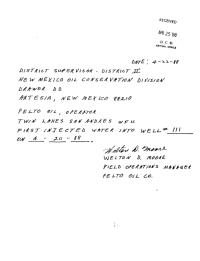 RECEIVED
APR 25 '88
O. C. D.
ARTESIA, OFFICE
DATE: 4-22-88
DISTRICT SUPERVISOR - DISTRICT II
NEW MEXICO OIL CONSERVATION DIVISION
DRAWER DD
ARTESIA, NEW MEXICO 88210
PELTO OIL, OPERATOR
TWIN LAKES SAN ANDRES WFU
FIRST INJECTED WATER INTO WELL # 111
ON 4 - 20 - 88.
Welton D. Moore
WELTON D. MOORE
FIELD OPERATIONS MANAGER
PELTO OIL CO.